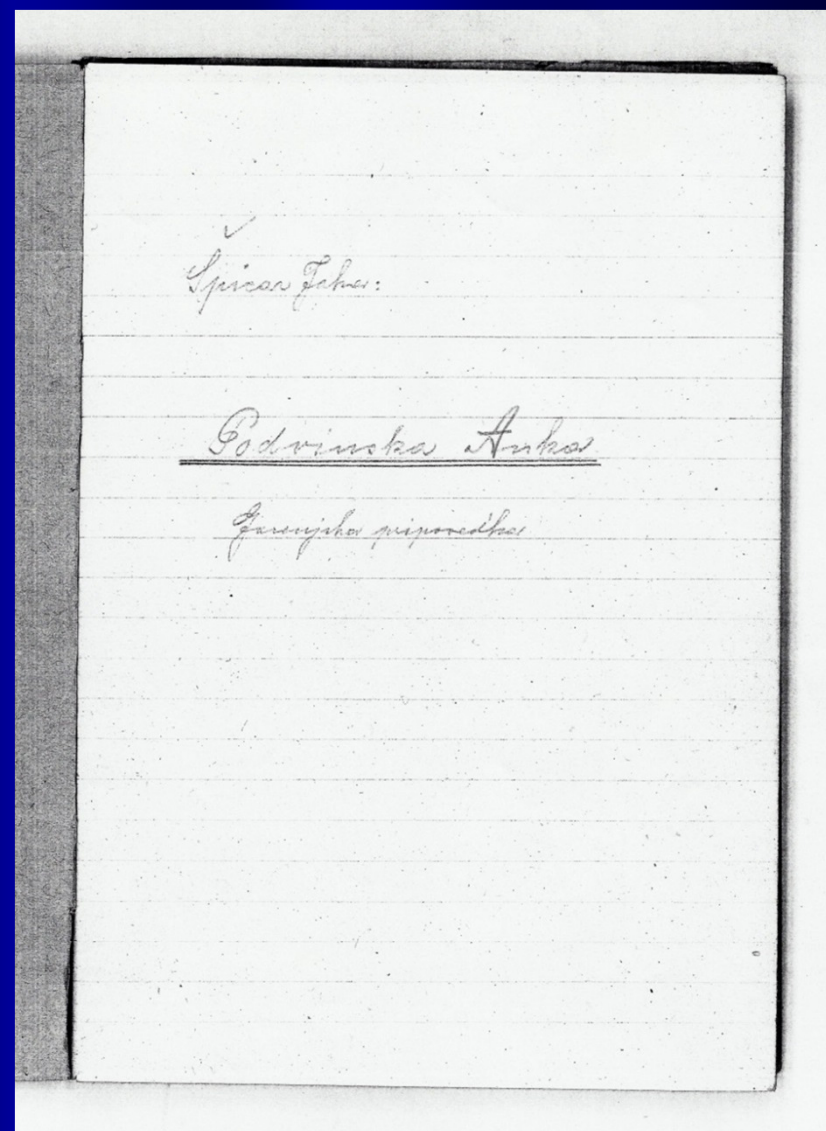 Špicar Jaka:
Podvinska Anka
Gorenjska pripovedka